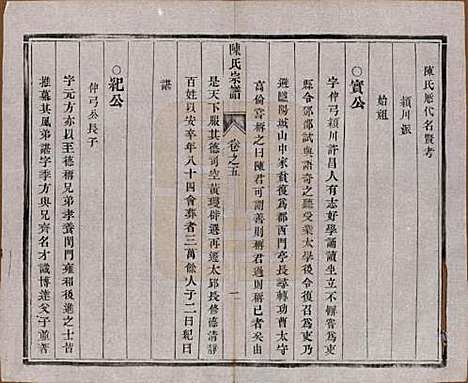 陳氏歷代名賢考
潁川派
始祖
○寔公
字仲弓潁川許昌人有志好學誦讀坐立不倦
縣令鄧邵試與語奇之聽受業太學後令復召為吏乃
避隱陽城山中家貧復為郡西門亭長尋轉功曹太守
高倫嘗稱之曰陳君可謂善則稱君過則稱己者矣由
陳氏宗譜
卷之五
一
是天下服其德司空黃瓊辟選再遷太邱長修德清靜
百姓以安辛年八十四會葬者三萬餘人子二曰紀曰
諶
○紀公
仲弓公長子
字元方亦以至德稱兄弟孝養閨門雍和後進之士皆
推慕其風弟諶字季方與兄齊名才識博達父子並著